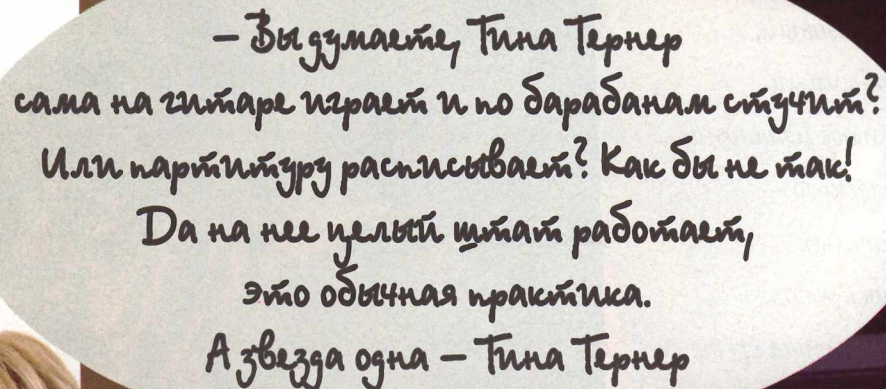 – Вы думаете, Тина Тернер
сама на гитаре играет и по барабанам стучит?
Или партитуру расписывает? Как бы не так!
Да на нее целый штат работает,
это обычная практика.
А звезда одна – Тина Тернер